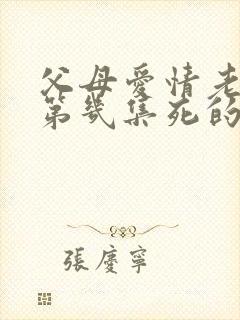 父母愛情老
第幾集死的
張慶寧